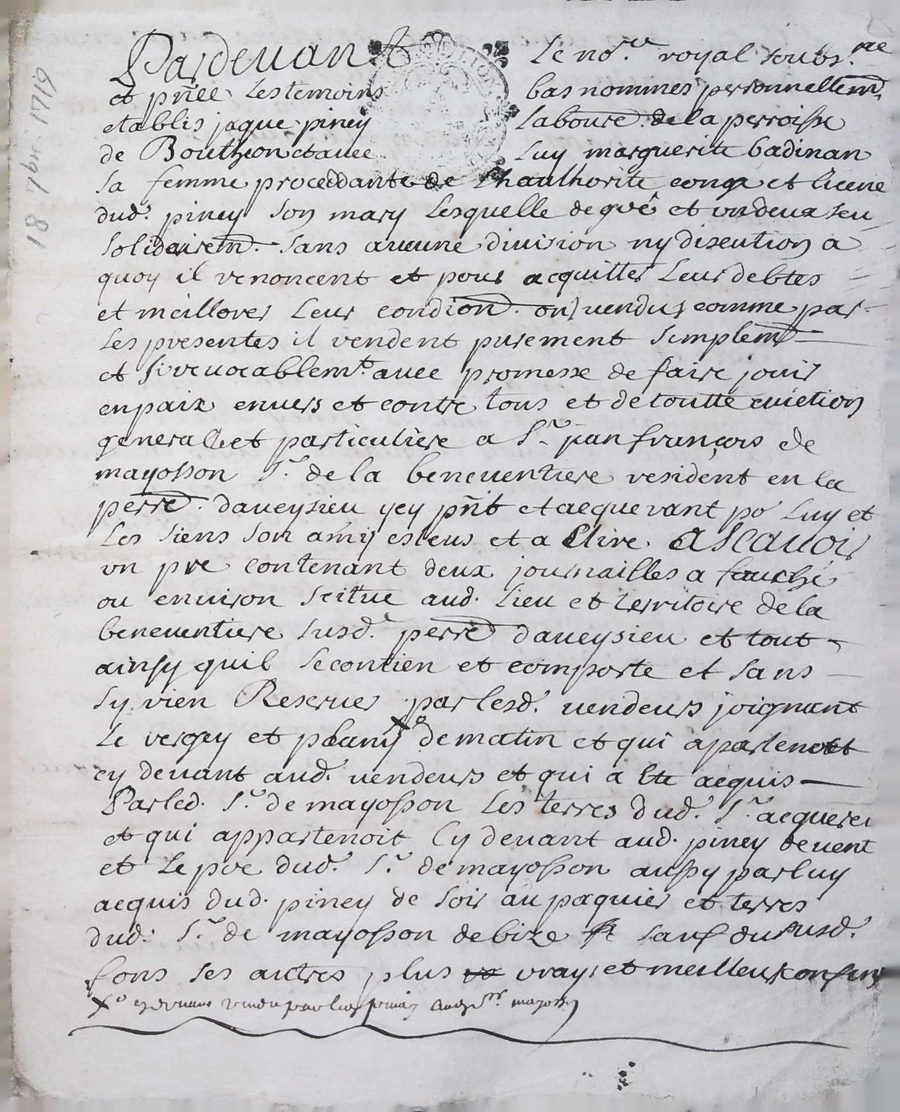 18 7bre 1719
Pardevant Le nore. royal soubsne
et pñce Les temoins bas nommes personnellemt
etablis jaque piney Laboure. de la perroisse
de Boutheon et avec Luy marguerite badinan
sa femme proceddante de Lhauthorite conge et licene
dud. piney son mary Lesquelle de gré et un deux seu
solidairemt. sans aucune division ny discution a
quoy il renoncent et pour acquitter Leur debtes
et meillorer Leur condion. ont vendus comme par
Les presentes il vendent purement simplemt
et Jrrevocablemt. avec promesse de faire jouir
en paix envers et contre tous et de toutte eviction
generalle et particuliere a Sr. jean françois de
mayosson Sr. de la beneventiere resident en la
perre. daveysieu ycy pñt et acquerant po Luy et
Les siens son amy esleus et a Elire. Ascavoir
un pre contenant deux journailles a fauché
ou environ scitue aud. Lieu et territoire de la
beneventiere susd. perre daveysieu et tout
ainsy quil se contien et comporte et sans
sy rien Reserver par lesd. vendeurs joignant
Le verger et plany de matin et qui apartenoit
cy devant aud. vendeurs et qui a Ete acquis
Par led. Sr. de mayosson Les terres dud. Sr. acquereur
et qui appartenoit Cy devant aud. piney de vent
et Le pre dud. Sr. de mayosson aussy par luy
acquis dud. piney de soir au paquier et terres
dud. Sr. de mayosson de bize sauf du susd.
fons ses autres plus vrays et meilleur confins
cy devant vendu par led piney aud Sr. mayosson